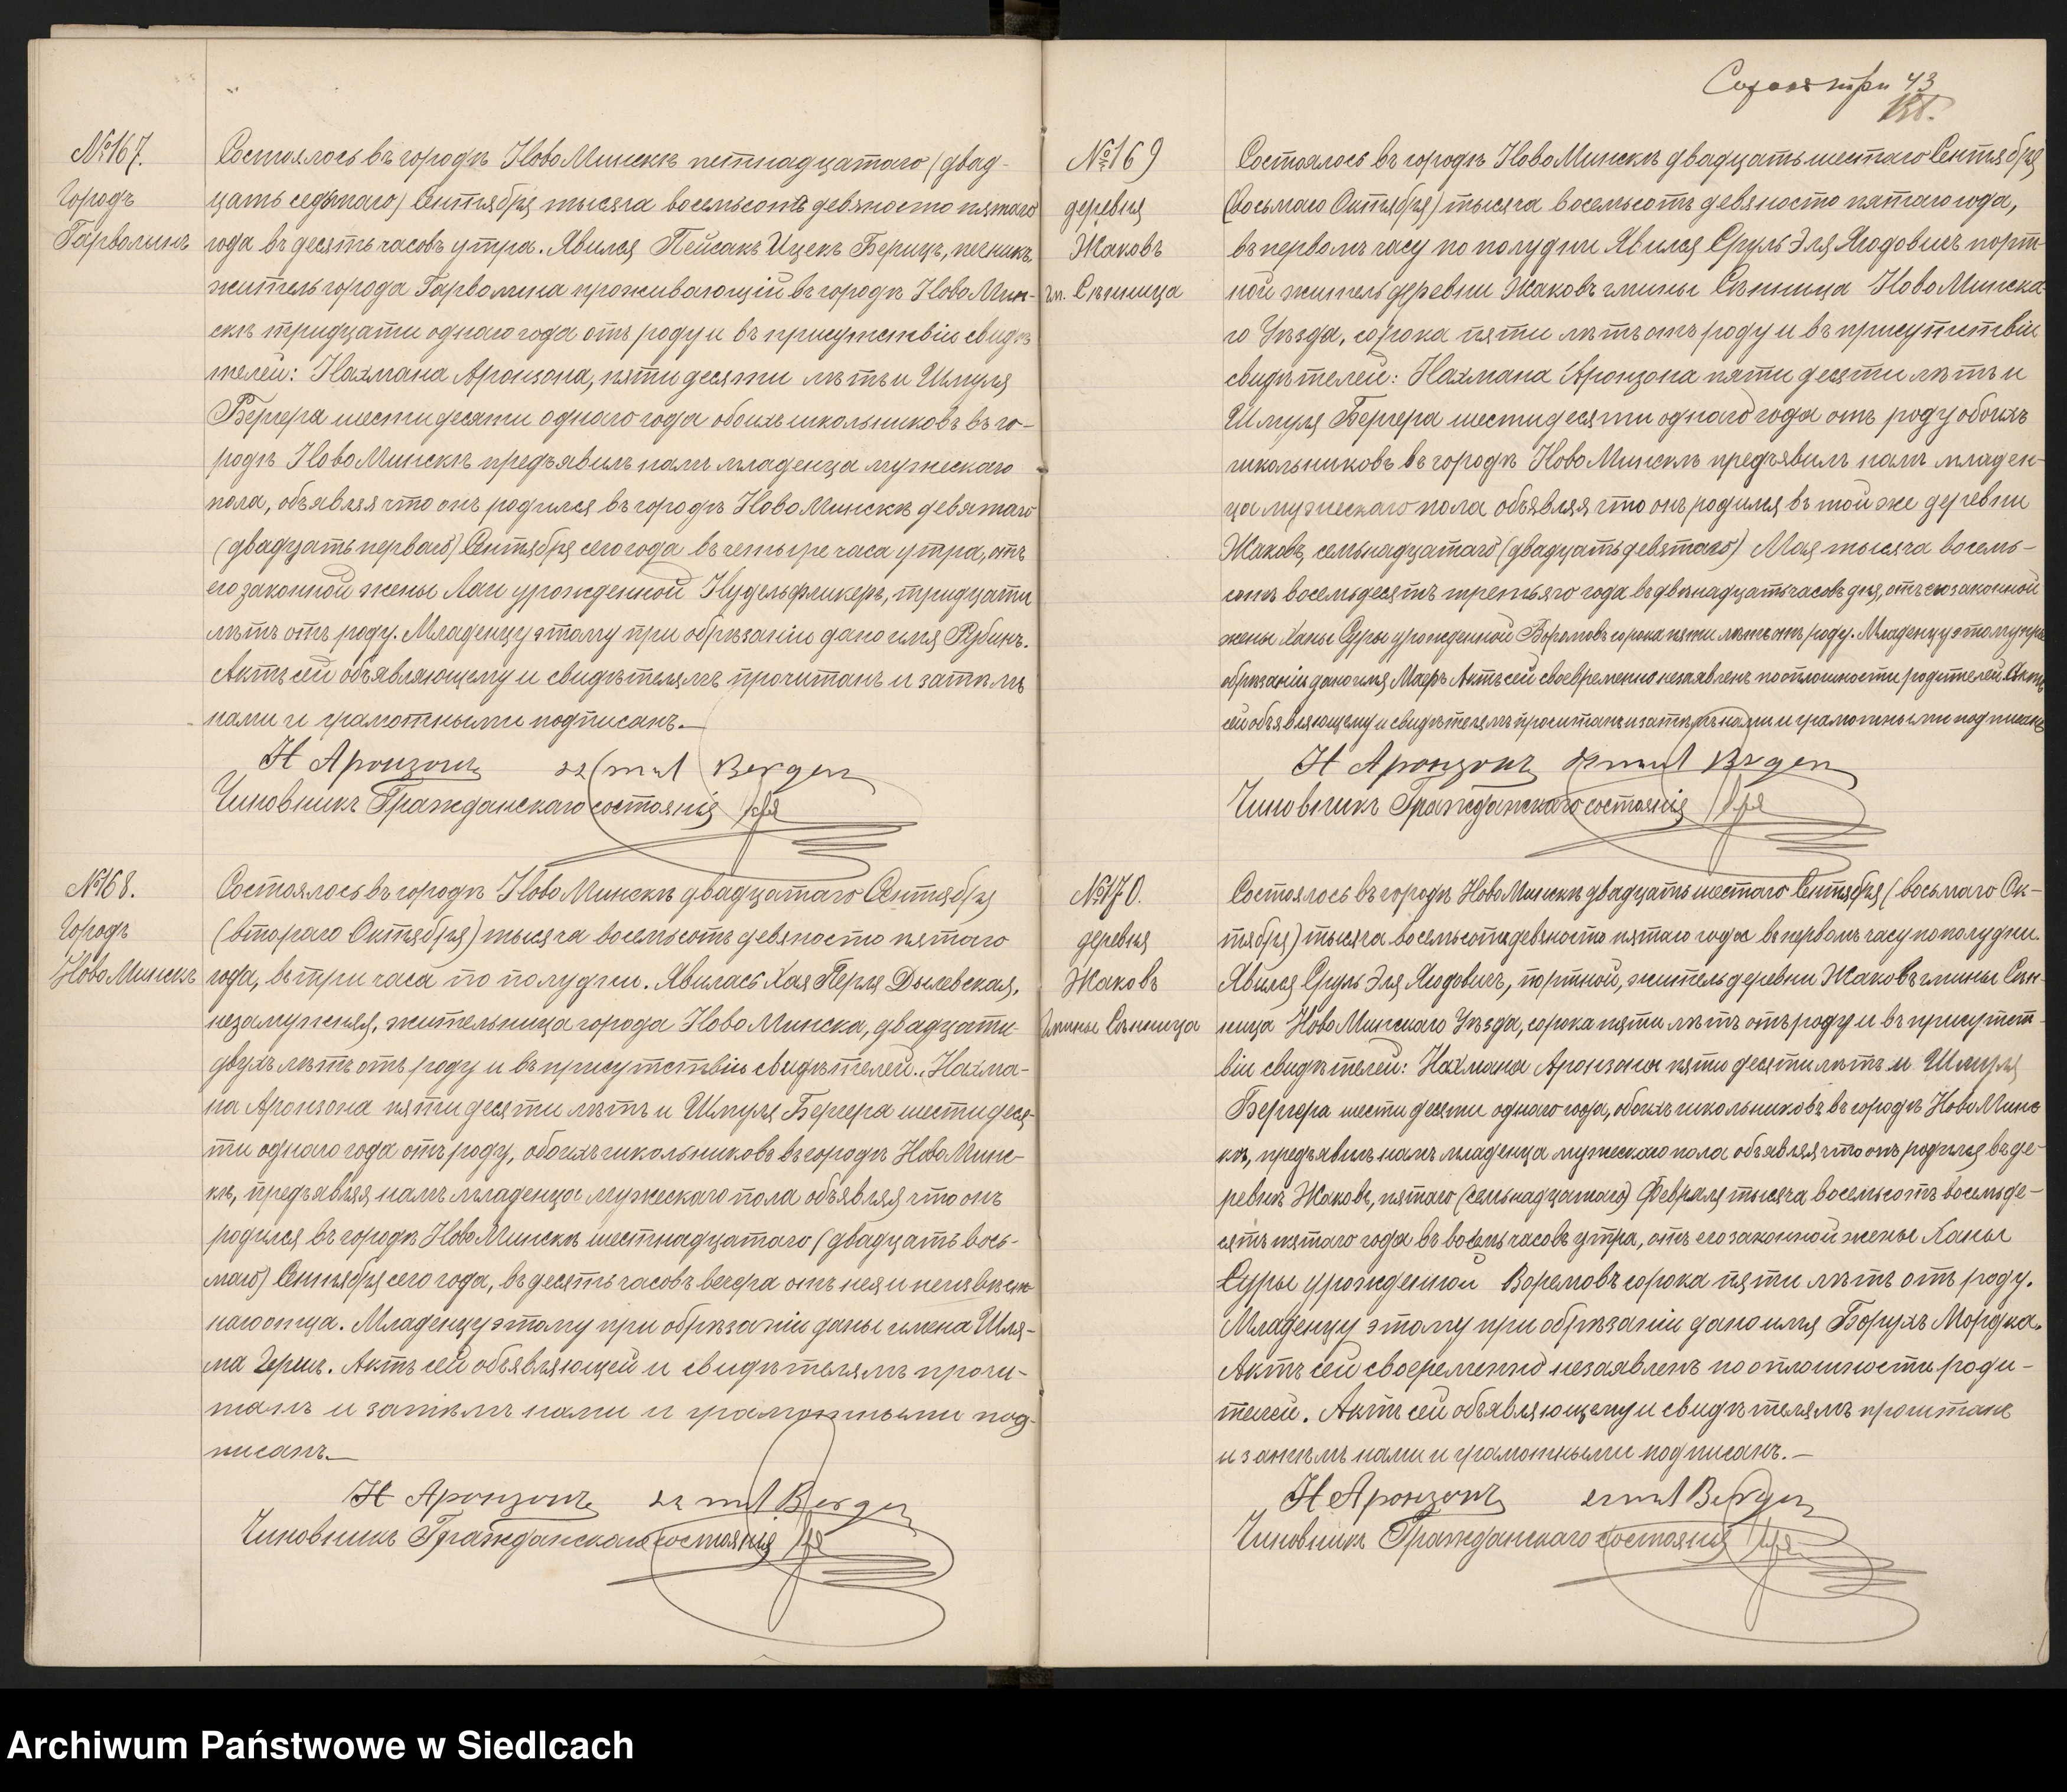 №167.
Городъ
Гарволинъ
Состоялось въ городѣ НовоМинскѣ пятнадцатаго (двад-
цать седьмаго) Сентября тысяча восемьсотъ девяносто пятаго
года въ десять часовъ утра. Явился Пейсакъ Ицекъ Берицъ, печникъ,
житель города Гарволина проживающій въ городѣ НовоМин-
скѣ тридцати одного года отъ роду и въ присутствіи свидѣ-
телей: Нахмана Аронзона, пятидесяти лѣтъ и Шмуля
Бергера шестидесяти одного года обоихъ школьниковъ въ го-
родѣ НовоМинскѣ предъявилъ намъ младенца мужескаго
пола, объявляя что онъ родился въ городѣ НовоМинскѣ девятаго
(двадцать перваго) Сентября сего года въ четыре часа утра, отъ
его законной жены Лаи урожденной Нудельфликеръ, тридцати
лѣтъ отъ роду. Младенцу этому при обрѣзаніи дано имя Рубинъ.
Актъ сей объявляющему и свидѣтелямъ прочитанъ и затѣмъ
нами и грамотными подписанъ.—
Н Аронзонъ Szmul Berger
Чиновникъ Гражданскаго состоянія
№168.
Городъ
НовоМинскъ
Состоялось въ городѣ НовоМинскѣ двадцатаго Сентября
(втораго Октября) тысяча восемьсотъ девяносто пятаго
года, въ три часа по полудни. Явилась Хая Перля Дылевская,
незамужняя, жительница города НовоМинска, двадцати-
двухъ лѣтъ отъ роду и въ присутствіи свидѣтелей: Нахма-
на Аронзона пятидесяти лѣтъ и Шмуля Бергера шестидеся-
ти одного года отъ роду, обоихъ школьниковъ въ городѣ НовоМинс-
кѣ, предъявляя намъ младенца мужескаго пола объявляя что онъ
родился въ городѣ НовоМинскѣ шестнадцатаго (двадцать вось-
маго) Сентября сего года, въ десять часовъ вечера отъ нея и неизвѣст-
наго отца. Младенцу этому при обрѣзаніи даны имена Шля-
ма Герш. Актъ сей объявляющей и свидѣтелямъ прочи-
танъ и затѣмъ нами и грамотными под-
писанъ.—
Н Аронзонъ Szmul Berger
Чиновникъ Гражданскаго состоянія
Сорок три 43
№169
деревня
Жаковъ
гм. Сѣнница
Состоялось въ городѣ НовоМинскѣ двадцать шестаго Сентября
(восьмаго Октября) тысяча восемьсотъ девяносто пятаго года,
въ первомъ часу по полудни Явился Сруль Эля Ягодовичъ порт-
ной житель деревни Жаковъ гмины Сѣнница НовоМинска-
го Уѣзда, сорока пяти лѣтъ отъ роду и въ присутствіи
свидѣтелей: Нахмана Аронзона пятидесяти лѣтъ и
Шмуля Бергера шестидесяти одного года отъ роду обоихъ
школьниковъ въ городѣ НовоМинскѣ предъявилъ намъ младен-
ца мужескаго пола объявляя что онъ родился въ той же деревни
Жаковъ, семьнадцатаго (двадцать девятаго) Мая тысяча восемь-
сотъ восемьдесятъ третьяго года въ двѣнадцать часовъ дня, отъ его законной
жены Ханы Суры урожденной Воремовъ сорока пяти лѣтъ отъ роду. Младенцу этому при
обрѣзаніи дано имя Актъ сей своевременно незаявленъ по оплошности родителей. Актъ
сей объявляющему и свидѣтелямъ прочитанъ и затѣмъ нами и грамотными подписанъ
Н Аронзонъ Szmul Berger
Чиновникъ Гражданскаго состоянія
№170.
деревня
Жаковъ
Гмины Сѣнница
Состоялось въ городѣ НовоМинскѣ двадцать шестаго Сентября (восьмаго Ок-
тября) тысяча восемьсотъ девяносто пятаго года въ первомъ часу по полудни.
Явился Сруль Эля Ягодовичъ, портной, житель деревни Жаковъ гмины Сѣн-
ница НовоМинскаго Уѣзда, сорока пяти лѣтъ отъ роду и въ присутст-
віи свидѣтелей: Нахмана Аронзона пятидесяти лѣтъ и Шмуля
Бергера шестидесяти одного года, обоихъ школьниковъ въ городѣ НовоМинс
кѣ, предъявилъ намъ младенца мужескаго пола объявляя что онъ родился въ де-
ревнѣ Жаковъ, пятаго (семьнадцатаго) Февраля тысяча восемьсотъ восемьде-
сятъ пятаго года въ восемь часовъ утра, отъ его законной жены Ханы
Суры урожденной Воремовъ сорока пяти лѣтъ отъ роду.
Младенцу этому при обрѣзаніи дано имя Борухъ Мордка.
Актъ сей своевременно незаявленъ по оплошности роди-
телей. Актъ сей объявляющему и свидѣтелямъ прочитанъ
и затѣмъ нами и грамотными подписанъ.—
Н Аронзонъ Szmul Berger
Чиновникъ Гражданскаго состоянія
Archiwum Państwowe w Siedlcach